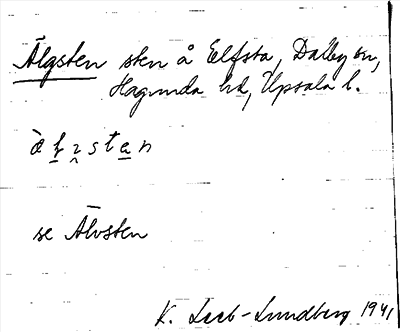 Älgsten sten å Eelfsta, Dalby sn,
Hagunda hd, Upsala l.
se Älvsten
K. Leeb-Lundberg 1941